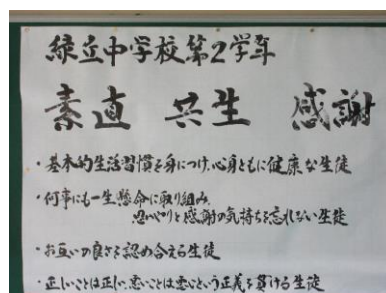 緑丘中学校第2学年
素直 共生 感謝
・基本的生活習慣を身につけ、心身ともに健康な生徒
・何事にも一生懸命に取り組み、
思いやりと感謝の気持ちを忘れない生徒
・お互いの良さを認め合える生徒
・正しいことは正しい、悪いことは悪いという正義を貫ける生徒